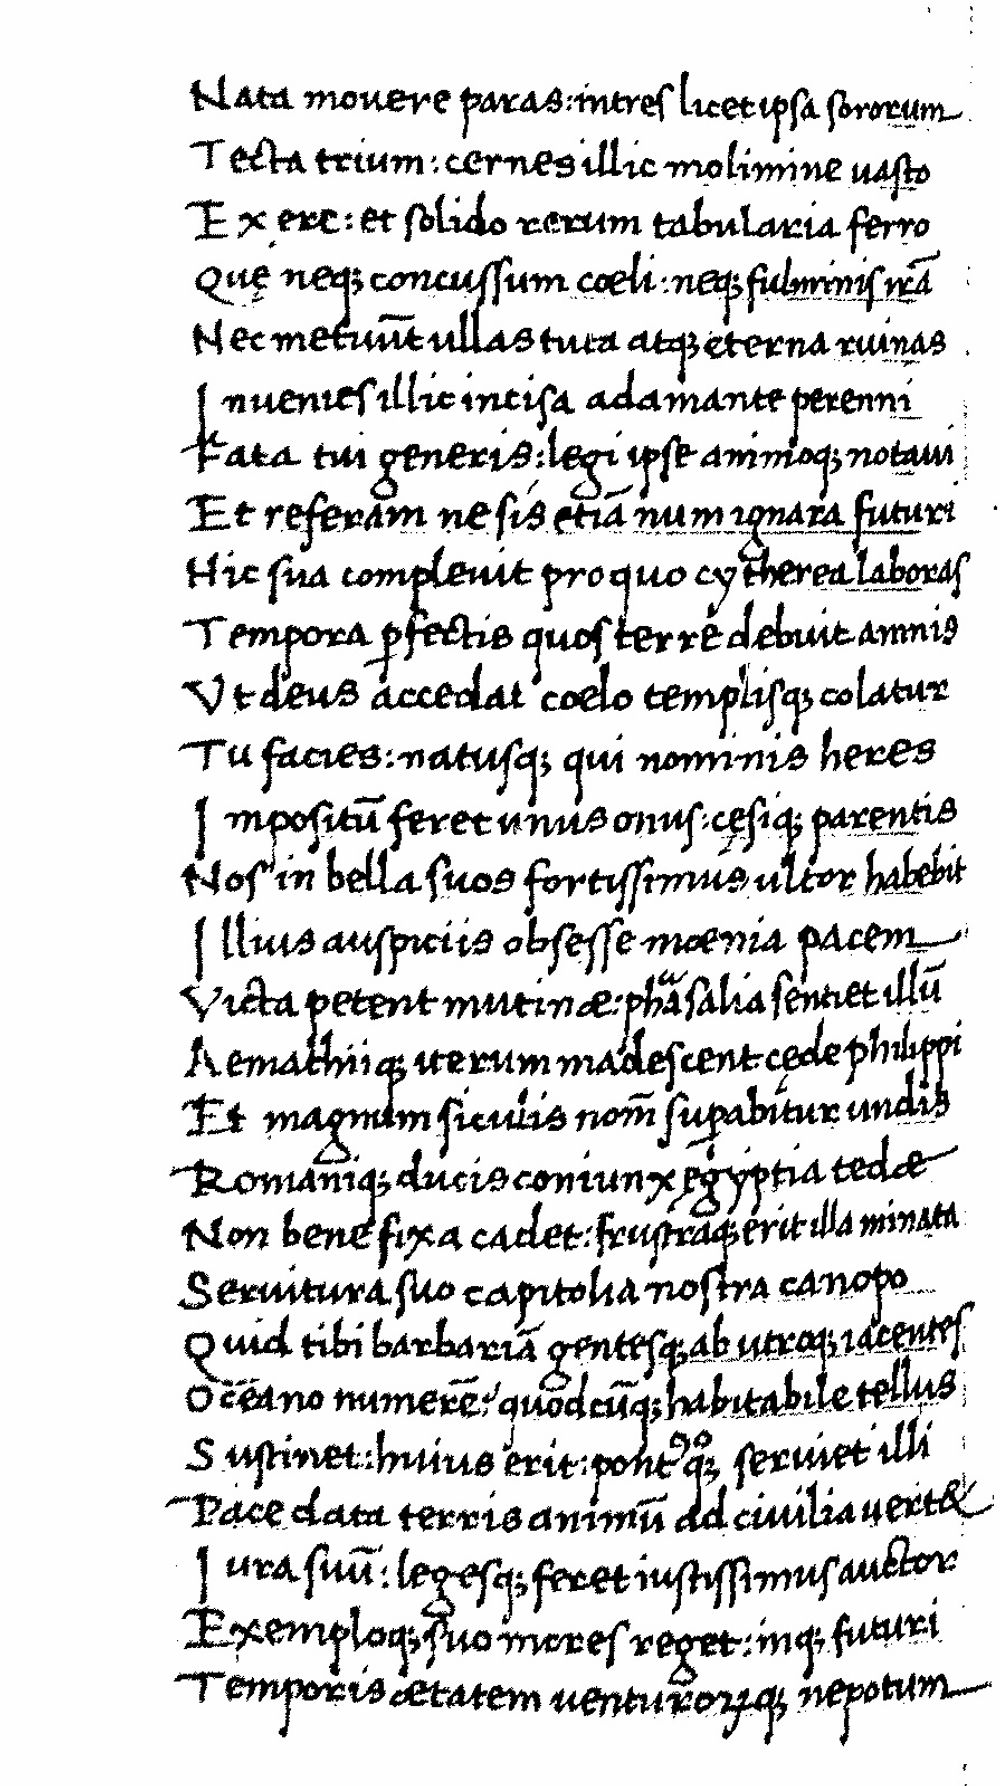 Nata mouere paras: intres licet ipsa sororum
Tecta trium: cernes illic molimine uasto
Ex erc: et solido rerum tabularia ferro
Quę neq; concussum cœli: neq; fulminis irā
Nec metuūt ullas tuta atq; eterna ruinas
Inuenies illic incisa adamante perenni
Fata tui generis: legi ipse animoq; notaui
Et referam ne sis etiā num ignara futuri
Hic sua compleuit pro quo cytherea laboras
Tempora ꝑfectis quos terre debuit annis
Vt deus accedat coelo templisq; colatur
Tu facies: natusq; qui nominis heres
Impositū feret unus onus: cęsiq; parentis
Nos in bella suos fortissimus ultor habebit
Illius auspiciis obsesse mœnia pacem
Victa petent mutinæ: pharsalia sentiet illū
Aemathiiq; iterum madescent cęde philippi
Et magnum siculis nom̄ suꝑabitur undis
Romaniq; ducis coniunx ęgyptia tedæ
Non bene fixa cadet: frustraq; erit illa minata
Seruitura suo capitolia nostra canopo
Quid tibi barbariā gentesq; ab utroq; iacentes
Oceano numerē: quodcūq; habitabile tellus
Sustinet: huius erit: pontꝰ qͦq; seruiet illi
Pace data terris animū ad ciuilia uert&
Iura suū: legesq; feret iustissimus auctor
Exemploq; suo mores reget: inq; futuri
Temporis ætatem uenturoꝝq; nepotum